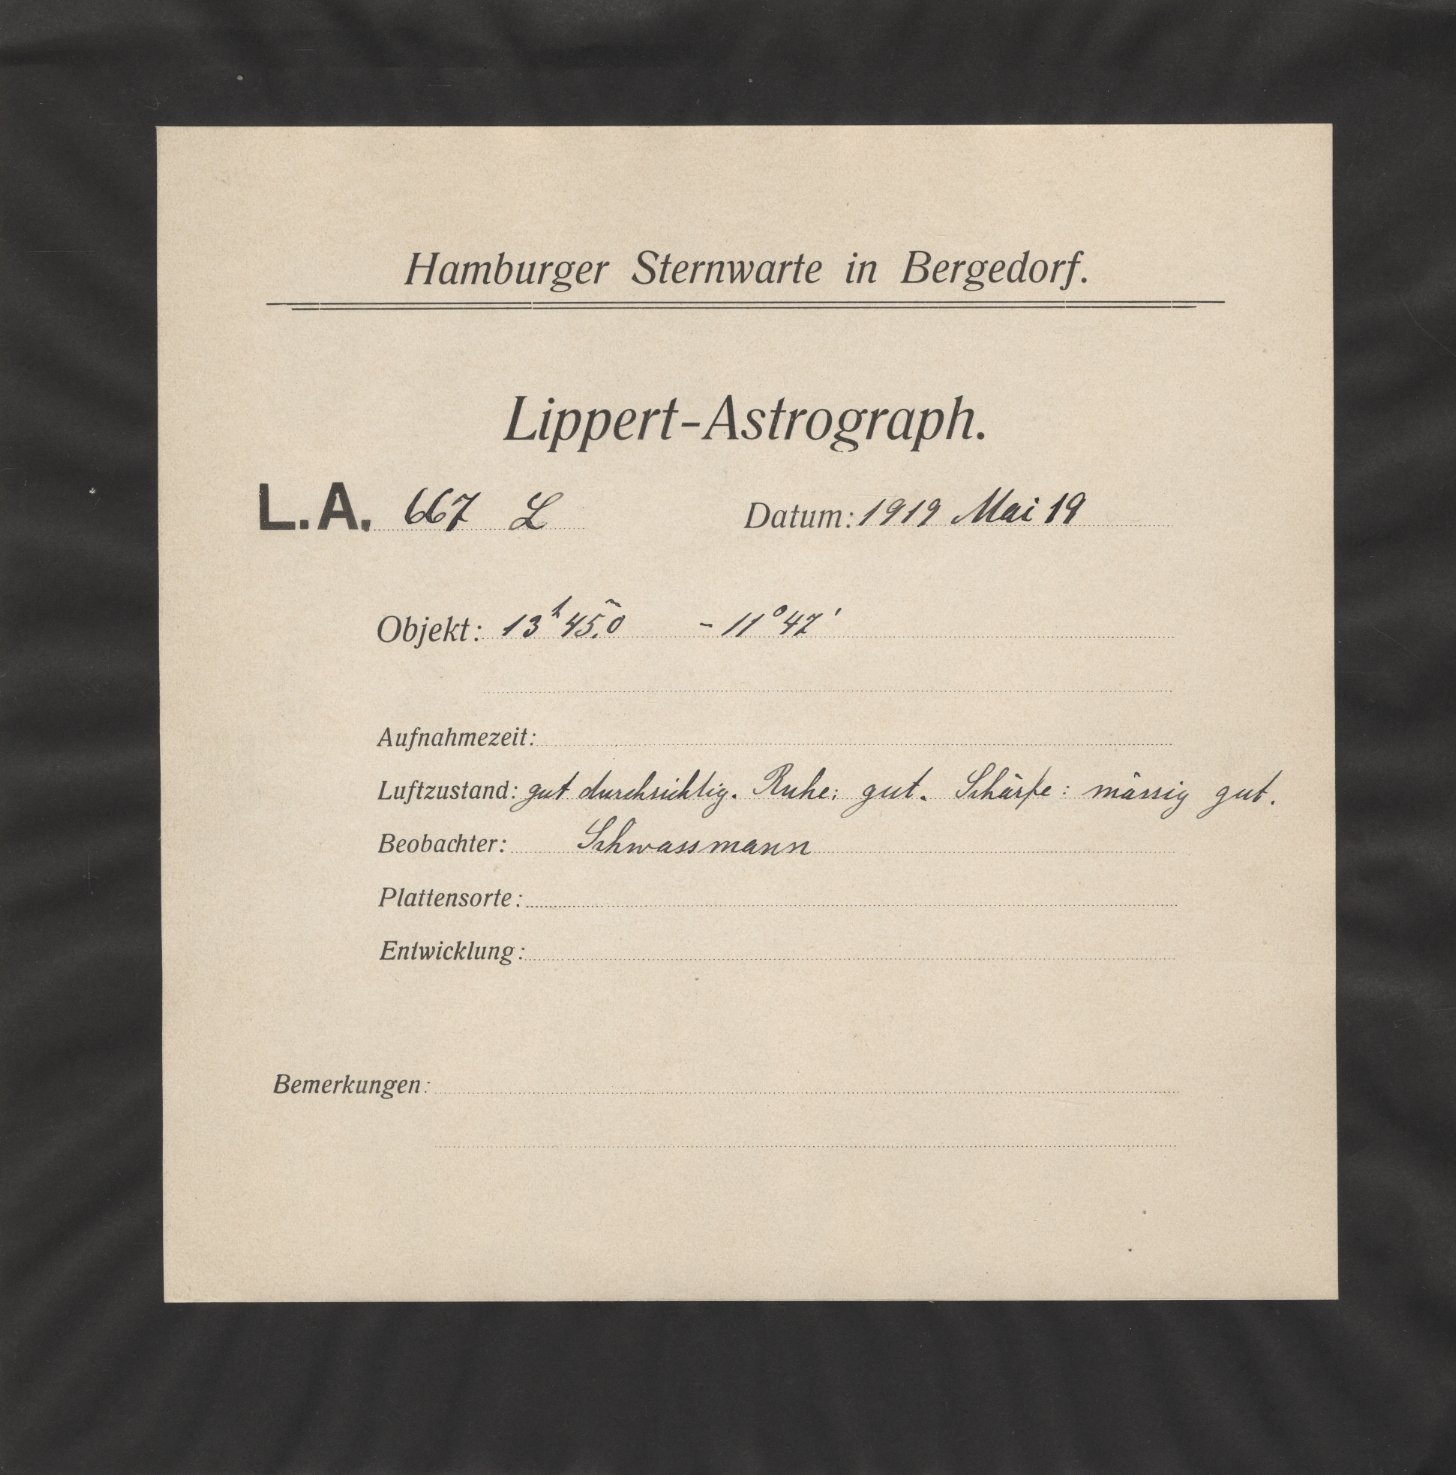 Hamburger Sternwarte in Bergedorf.
Lippert-Astrograph.
L.A. 667 L Datum: 1919 Mai 19
Objekt: 13ʰ 45,ᵐ0 - 11° 47'
Aufnahmezeit:
Luftzustand: gut durchsichtig. Ruhe: gut. Schärfe: mässig gut.
Beobachter: Schwassmann
Plattensorte:
Entwicklung:
Bemerkungen: